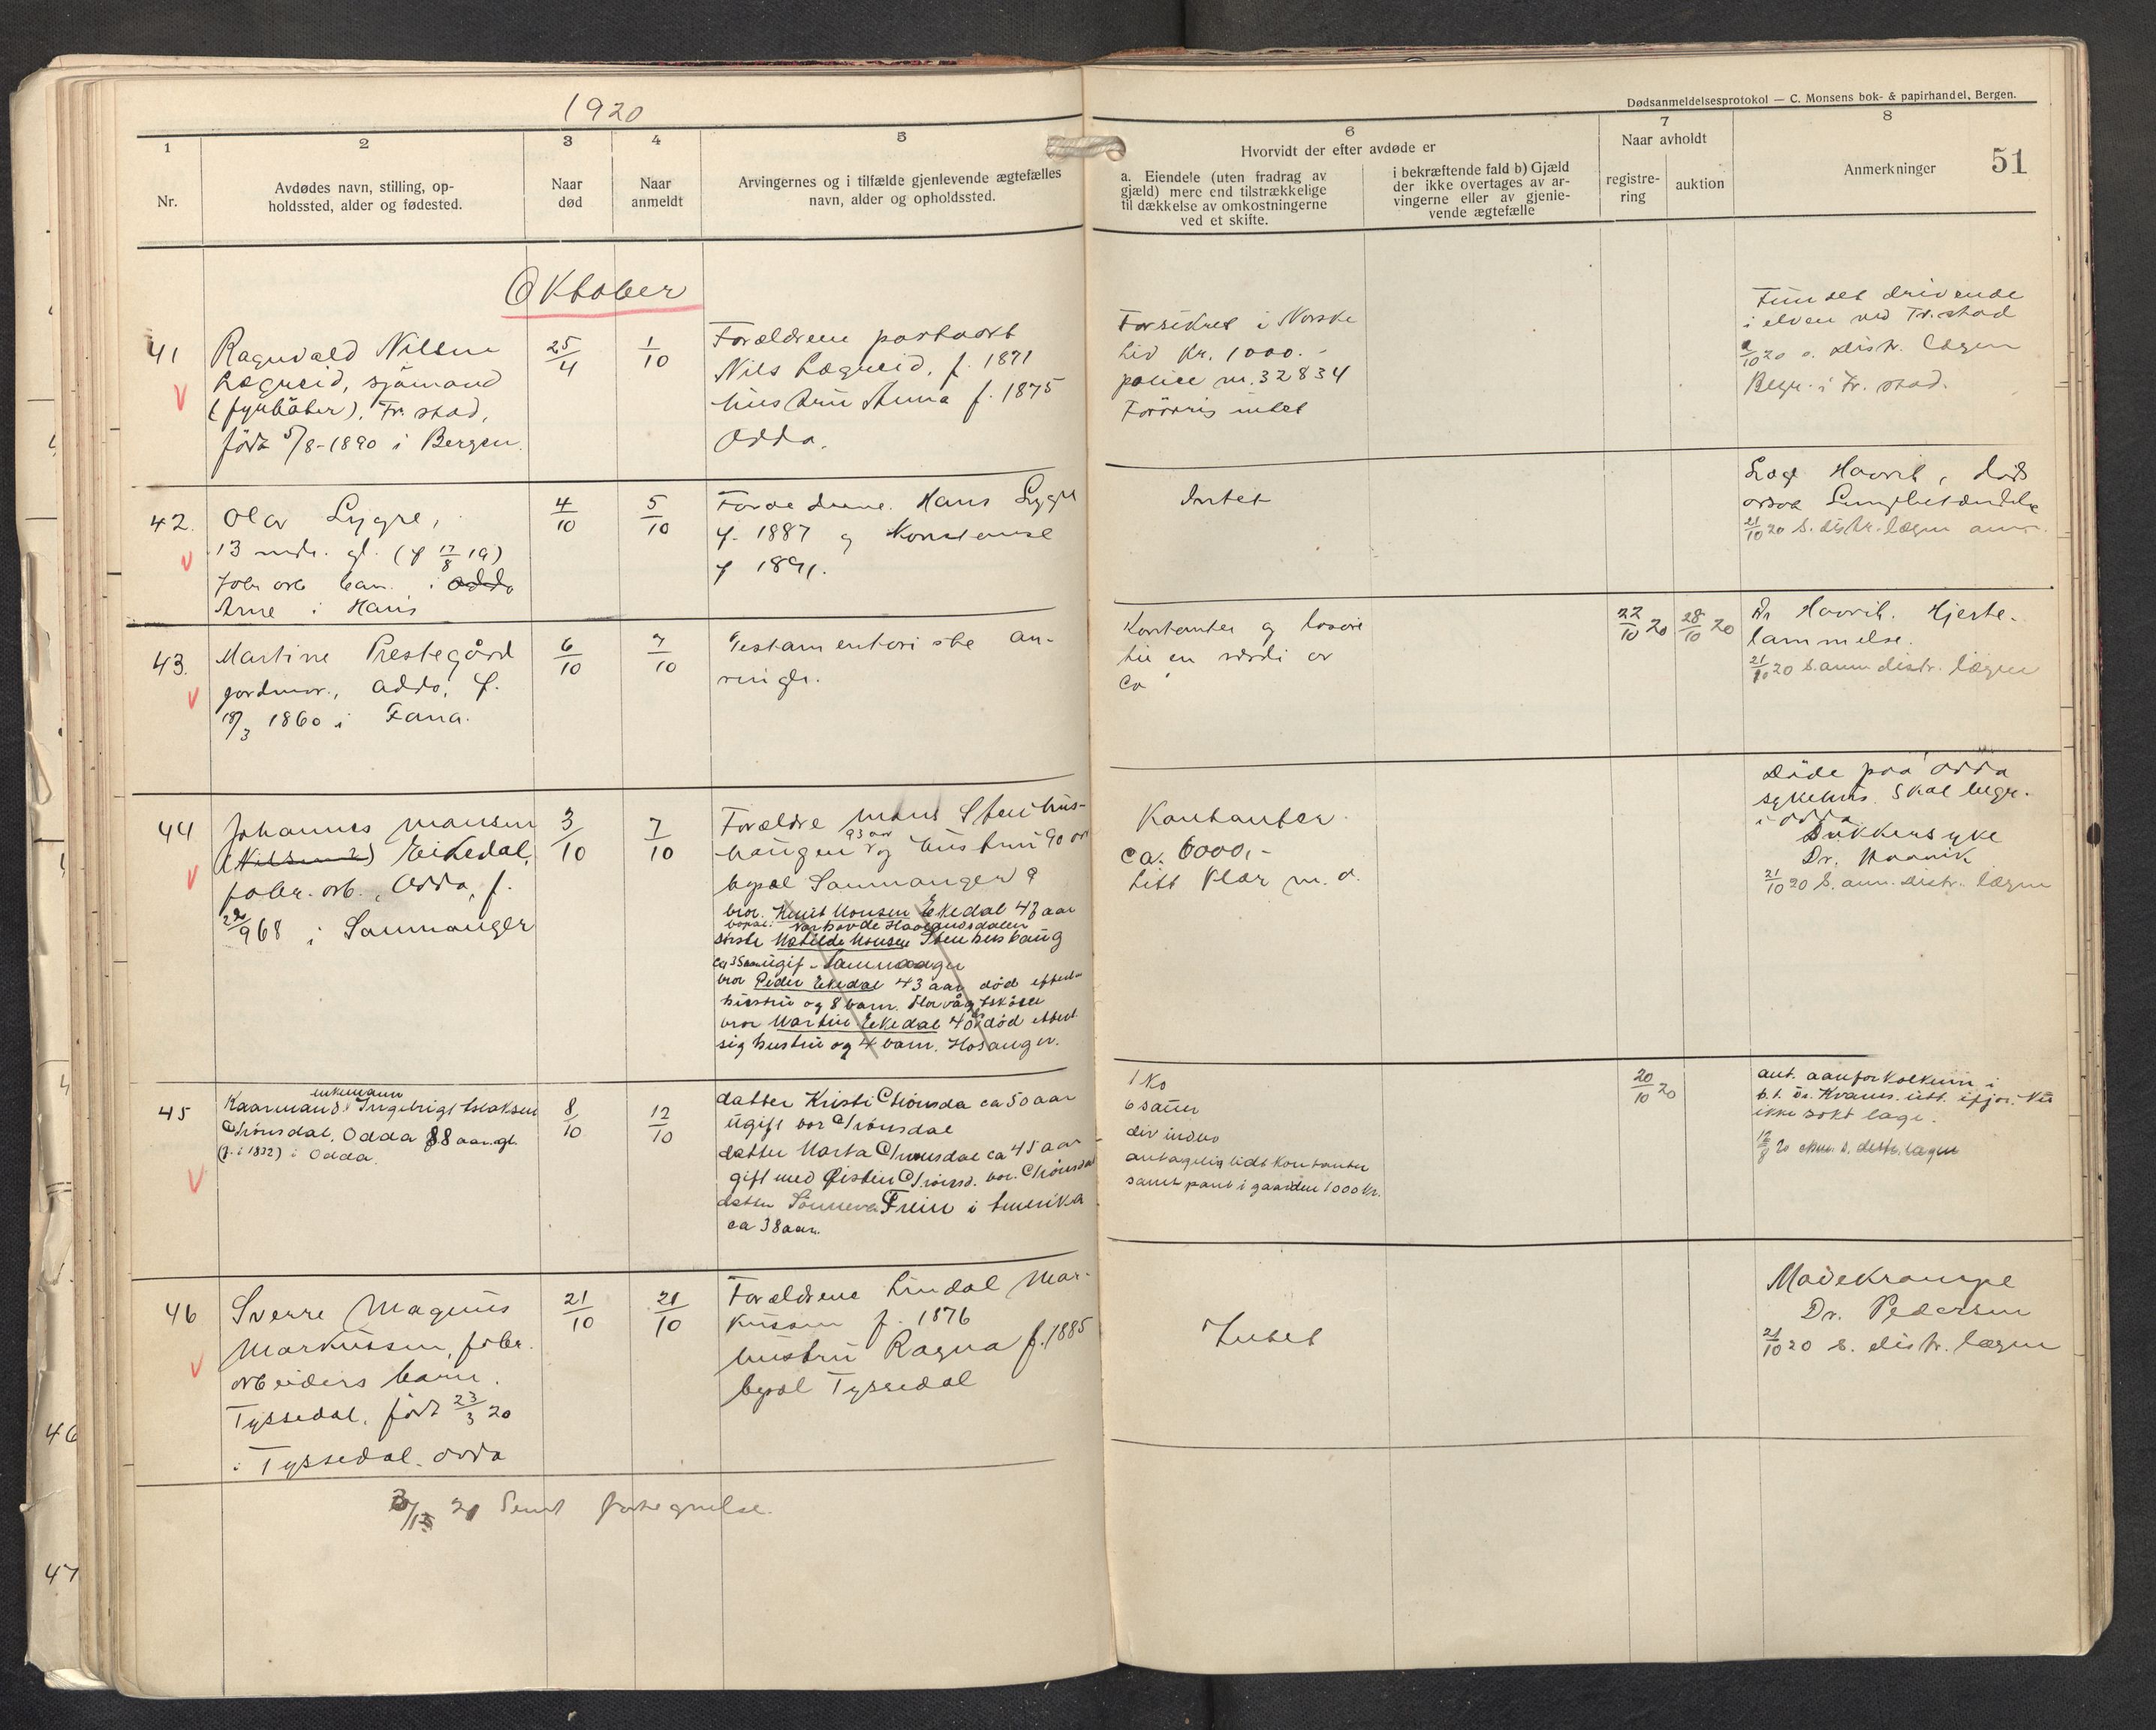 1920
Dødsanmeldelsesprotokol — C. Monsens bok- & papirhandel, Bergen.
51
1
Nr.
2
Avdødes navn, stilling, op-
holdssted, alder og fødested.
3
Naar
død
4
Naar
anmeldt
5
Arvingernes og i tilfælde gjenlevende ægtefælles
navn, alder og opholdssted.
6
Hvorvidt der efter avdøde er
a. Eiendele (uten fradrag av
gjæld) mere end tilstrækkelige
til dækkelse av omkostningerne
ved et skifte.
i bekræftende fald b) Gjæld
der ikke overtages av ar-
vingerne eller av gjenle-
vende ægtefælle
7
Naar avholdt
registre-
ring
auktion
8
Anmerkninger
Oktober
41
Ragnvald Nilsen
Lægreid, sjömand
(fyrböter), Fr. stad,
född 5/8-1890 i Bergen.
25/4
1/10
Forældrene
Nils Lægreid, f. 1871
hustru Anna f. 1875
Odda.
Forsikret i Norske
Liv Kr. 1000.-
police nr. 32834
Forövrig intet
Fundet drivende
i elven ved Fr. stad
/10 20 s. distr. lægen
Begr. i Fr. stad.
42.
Olav Lygre,
13 mdr. gl. (f 17/8 19)
fabr arb barn i Odda
Arne i Hans
4/10
5/10
Hans Lygre
f. 1887 og Konstanse
f 1891.
Intet
Læg Haavik, döds
orsak Lungbetændelse
21/10 20 s. distr. lægen anm.
43.
Martine Prestegård
jordmor, Odda, f.
18/3 1860 i Fana.
6/10
7/10
Testamentariske ar-
vinger.
Kontanter og løsøre
til en værdi av
Ca
22/10 20
28/10 20
Dr Haavik. Hjerte-
lammelse.
21/10 20 S. anm distr. lægen
44
Johannes Monsen
(Nilsen) Eikedal,
fabr. arb., Odda, f.
22/9 68 i Sammanger
3/10
7/10
Forældre Mons Stenhus-
haugen 93 aar og hustru 90 aar
bopæl Sammanger
bror. Knut Monsen Ekedal 47 aar
bopæl. Haalandsdalen
sörste Matilde Monsen Stenhushaug
ca 35 aar ugif. Sammanger
bror Peder Ekedal 43 aar död efterl
hustru og 8 barn.
bror Martin Eekedal 40 aar död efterl.
sig hustru og 4 barn. Hosanger.
Kontanter
ca. 6000,-
Litt klær m. d.
Döde paa Odda
sykehus. Skal begr.
i Odda
Sukkersyke
Dr. Haavik
21/10 20 S. anm. distr. lægen
45
enkemann
Kaarmand Ingebrigt Isaksen
Tronsdal, Odda 88 aar gl.
(f. i 1832) i Odda.
8/10
12/10
datter Kristi Tronsda ca 50 aar
ugift bor Tronsdal
datter Marta Tronsdal ca 45 aar
gift med Eisten Tronsd. bor. Tronsdal
datter Sönneva Frein i Amerika
ca 38 aar.
1 Ko
6 sauer
div indbo
antagelig lidt kontanter
samt pant i gaarden 1000 kr.
20/10 20
ant. aarforkalkning i
b. t. Dr. Kvams utt. ifjor. Nu
ikke sökt læge.
20 anm. s. distr. lægen
46
Sverre Magnus
Markussen, fabr.
arbeiders barn.
Tyssedal, född 23/3 20
i Tyssedal. Odda
21/10
21/10
Forældrene Lindal Mar-
kussen f. 1876
hustru Ragna f. 1885
bopæl Tyssedal
Intet
Mavekrampe
Dr. Pedersen
21/10 20 s. distr. lægen
Sendt fortegnelse.
46
47